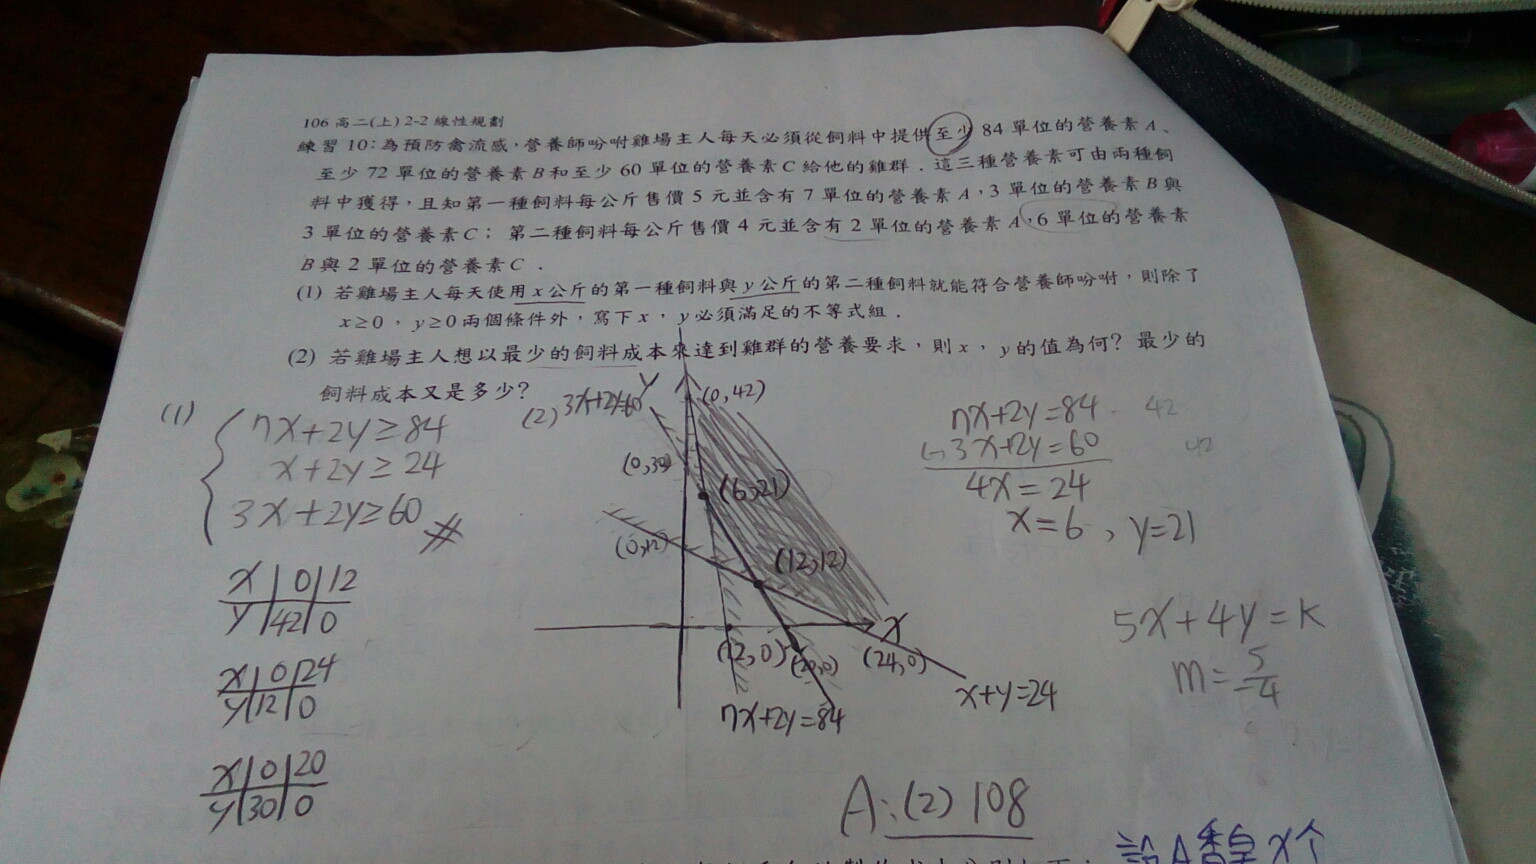 106 高二(上) 2-2 線性規劃
練習 10：為預防禽流感，營養師吩咐雞場主人每天必須從飼料中提供至少 84 單位的營養素 A、
至少 72 單位的營養素 B 和至少 60 單位的營養素 C 給他的雞群．這三種營養素可由兩種飼
料中獲得，且知第一種飼料每公斤售價 5 元並含有 7 單位的營養素 A，3 單位的營養素 B 與
3 單位的營養素 C； 第二種飼料每公斤售價 4 元並含有 2 單位的營養素 A，6 單位的營養素
B 與 2 單位的營養素 C．
(1) 若雞場主人每天使用 x 公斤的第一種飼料與 y 公斤的第二種飼料就能符合營養師吩咐，則除了
x≥0，y≥0 兩個條件外，寫下 x，y 必須滿足的不等式組．
(2) 若雞場主人想以最少的飼料成本來達到雞群的營養要求，則 x，y 的值為何？最少的
飼料成本又是多少？
(1)
7x+2y≥84
x+2y≥24
3x+2y≥60
x 0 12
y 42 0
x 0 24
y 12 0
x 0 20
y 30 0
(2) 3x+2y=60
y
(0,42)
(0,30)
(6,21)
(0,12)
(12,12)
x
(12,0)
(20,0)
(24,0)
x+y=24
7x+2y=84
7x+2y=84
42
-) 3x+2y=60
42
4x=24
x=6, y=21
5x+4y=k
m=5/-4
A:(2) 108
設A餐皇x个